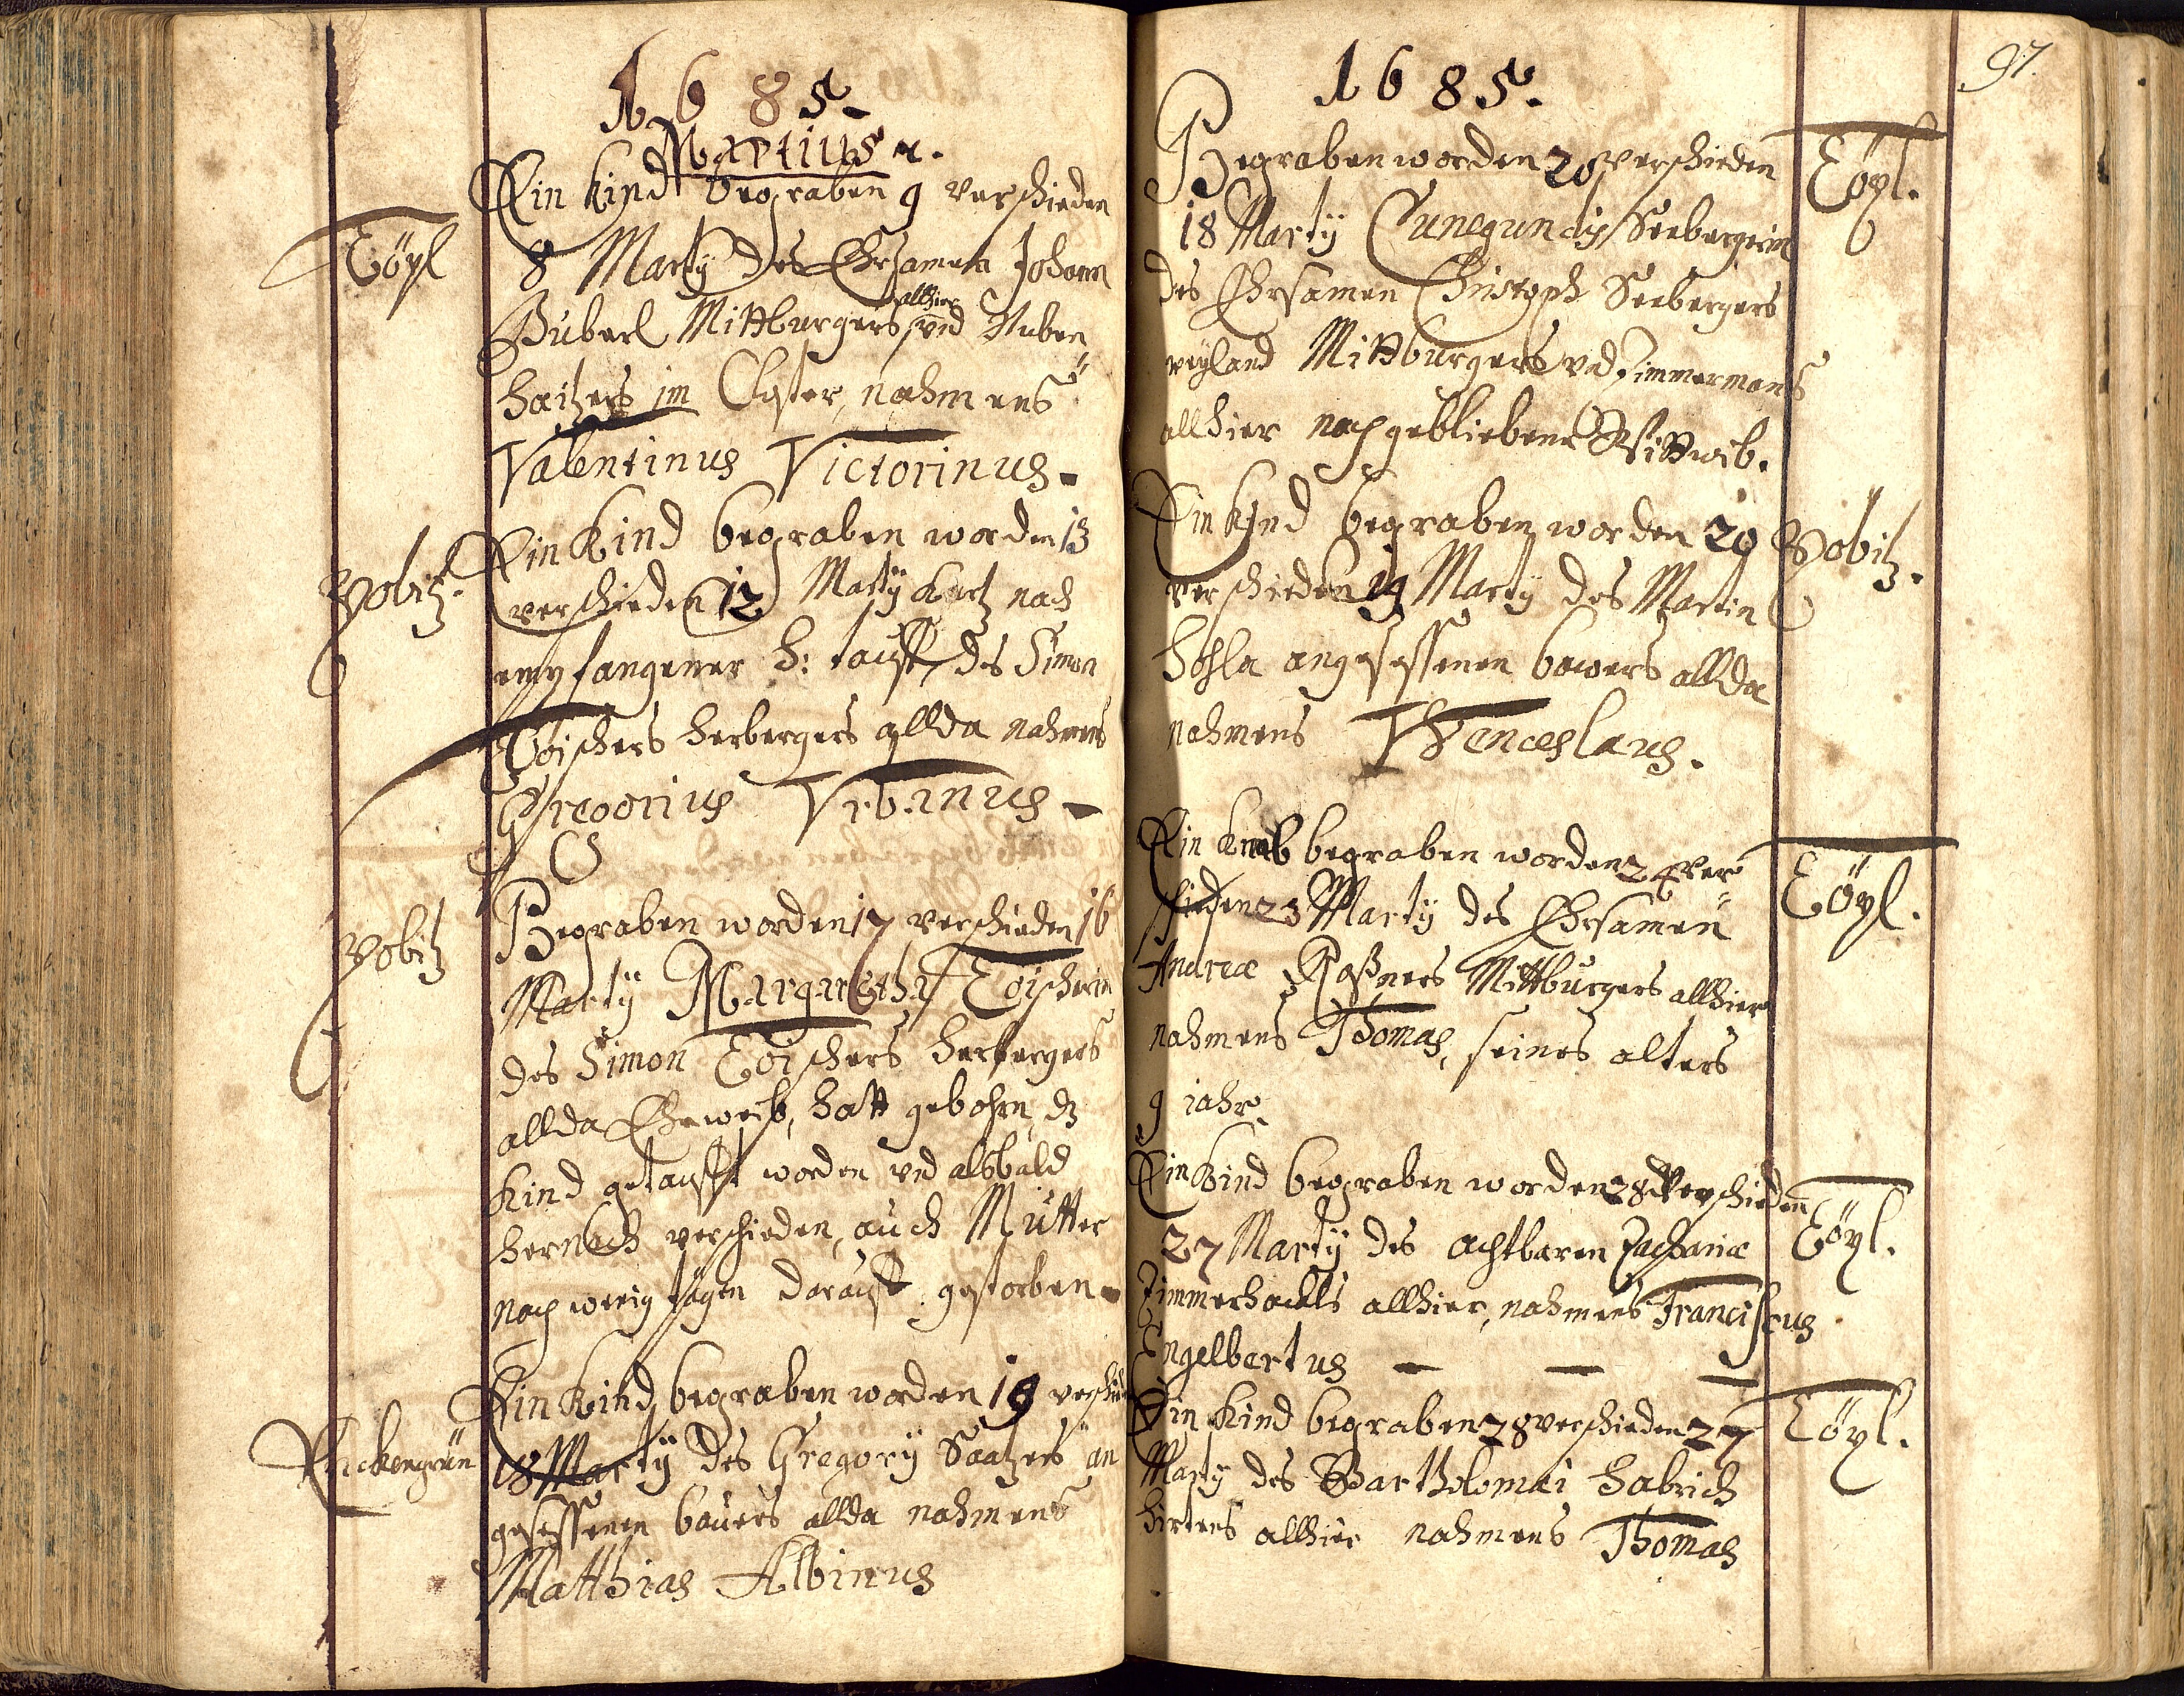 1685.
Martius
Ein Kindt begraben 9 verschieden
Töpl
8 Martÿ des Ehrsamen Johann
Buberl Mittburgers allhier vnd Stuben
haitzers im Closter, nahmens
Valentinus Victorinus.
Ein Kind begraben worden 13
verschieden 12 Martÿ kurtz nach
empfangener h: tauff, des Simon
Töischers herbergers allda nahmens
Gregorius Vrbinus
Begraben worden 17 verschieden 16
Martÿ Margaretha Töischerin
des Simon Töischers herbergers
allda Eheweib, hatt gebohrn, dz
Kind getaufft worden vnd alsbald
hernach verschieden, auch Mutter
nach wenig tagen darauff gestorben.
Ein Kind begraben worden 19 verschieden
18 Martÿ des Gregorÿ Saatzers an
gesessenen bauers allda nahmens
Matthias Albinus
97.
1685.
Begraben worden 20 verschieden
Töpl.
18 Martÿ Cunegundis Seebergerin
des Ehrsamen Christoph Seebergers
weyland Mittburgers vnd Zimmermans
allhier nachgebliebene Wittweib.
Ein Kind begraben worden 20
verschieden 19 Martÿ des Martin
angesessenen bawers allda
nahmens Wenceslaus.
Ein Knab begraben worden 24 ver
Töpl.
schieden 23 Martÿ des Ehrsamen
Andreæ Mittburgers allhier
nahmens Thomas, seines alters
9 jahr.
Ein Kind begraben worden 28 verschieden
27 Martÿ des achtbaren Zachariæ
Töpl.
Zimmerhackls allhier, nahmens Franciscus
Engelbertus
Ein Kind begraben 28 verschieden 27
Töpl.
Martÿ des Bartholomæi Habrich
hirtens allhier nahmens Thomas